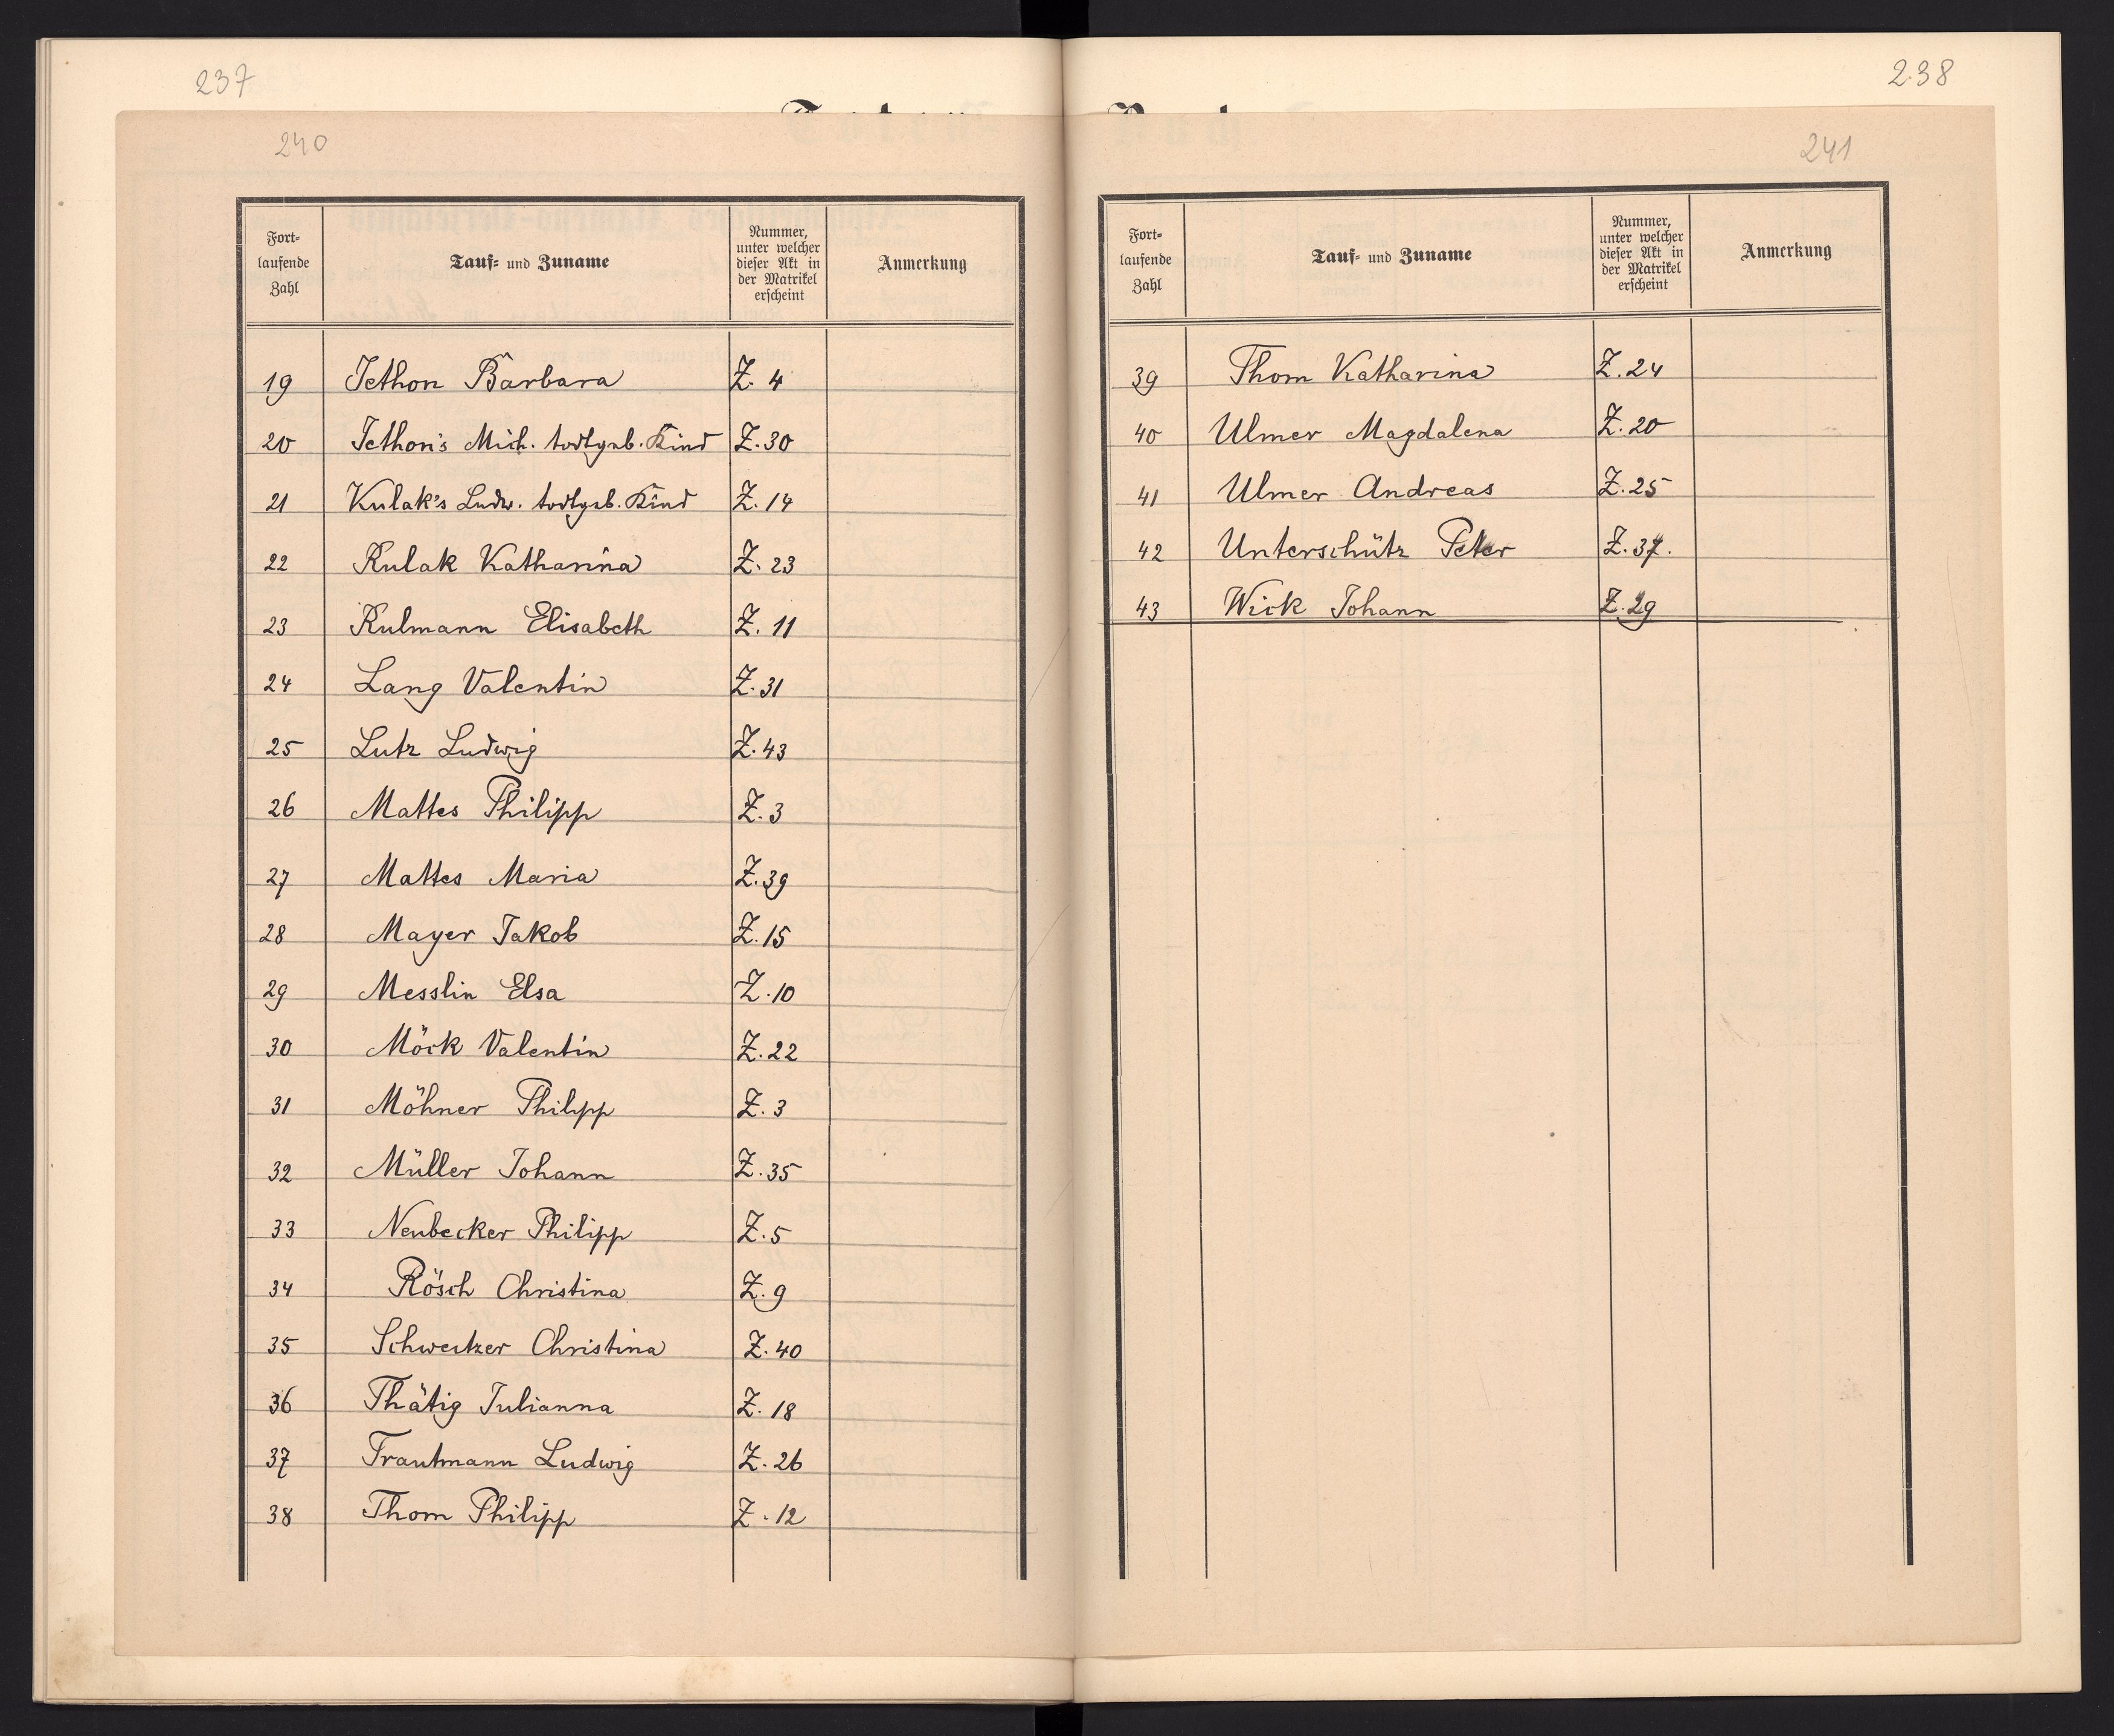 237
240
Fort-
laufende
Zahl
Tauf- und Zuname
Nummer,
unter welcher
dieser Akt in
der Matrikel
erscheint
Anmerkung
19 Jethon Barbara Z. 4
20 Jethon's Mich. todtgeb. Kind Z. 30
21 Kulak's Ludw. todtgeb. Kind Z. 14
22 Kulak Katharina Z. 23
23 Kulmann Elisabeth Z. 11
24 Lang Valentin Z. 31
25 Lutz Ludwig Z. 43
26 Mattes Philipp Z. 3
27 Mattes Maria Z. 39
28 Mayer Jakob Z. 15
29 Messlin Elsa Z. 10
30 Möck Valentin Z. 22
31 Möhner Philipp Z. 3
32 Müller Johann Z. 35
33 Neubecker Philipp Z. 5
34 Rösch Christina Z. 9
35 Schweitzer Christina Z. 40
36 Thätig Julianna Z. 18
37 Trautmann Ludwig Z. 26
38 Thom Philipp Z. 12
238
241
Fort-
laufende
Zahl
Tauf- und Zuname
Nummer,
unter welcher
dieser Akt in
der Matrikel
erscheint
Anmerkung
39 Thom Katharina Z. 24
40 Ulmer Magdalena Z. 20
41 Ulmer Andreas Z. 25
42 Unterschütz Peter Z. 37.
43 Wick Johann Z. 29